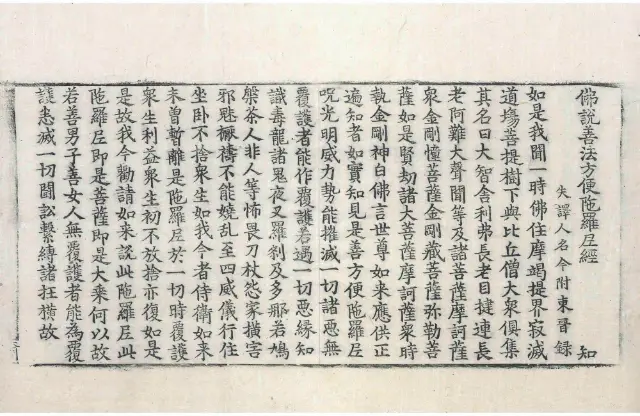 佛說善法方便陁羅尼經 知
失譯人名今附東晉錄
如是我聞一時佛住摩竭提界寂滅
道塲菩提樹下與比丘僧大衆俱集
其名曰大智舍利弗長老目揵連長
老阿難大聲聞等及諸菩薩摩訶薩
衆金剛憧菩薩金剛藏菩薩弥勒菩
薩如是賢劫諸大菩薩摩訶薩衆時
執金剛神白佛言世尊如来應供正
遍知者如實知見是善方便陁羅尼
呪光明威力勢能摧滅一切諸惡無
覆護者能作覆護若遇一切惡緣知
識毒龍諸鬼夜叉羅剎及多那若鳩
槃茶人非人等怖畏刀杖怨家撗害
邪魅橛禱不能嬈乱至四威儀行住
坐卧不捨衆生如我今者侍衛如来
未曾暫離是陁羅尼於一切時覆護
衆生利益衆生初不放捨亦復如是
是故我今勸請如来說此陁羅尼此
陁羅尼即是菩薩即是大乗何以故
若善男子善女人無覆護者能為覆
護悉滅一切鬪訟繫縛諸抂撗故